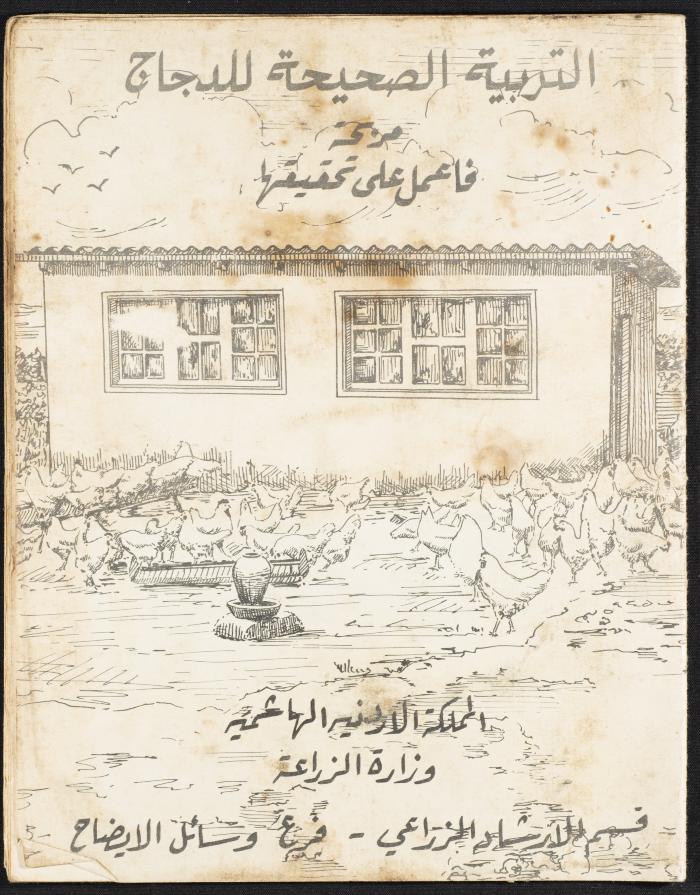 التربية الصحيحة للدجاج
مربحة
فاعمل على تحقيقها
المملكة الاردنيه الهاشميه
وزارة الزراعة
قسم الارشاد الزراعي - فرع وسائل الايضاح